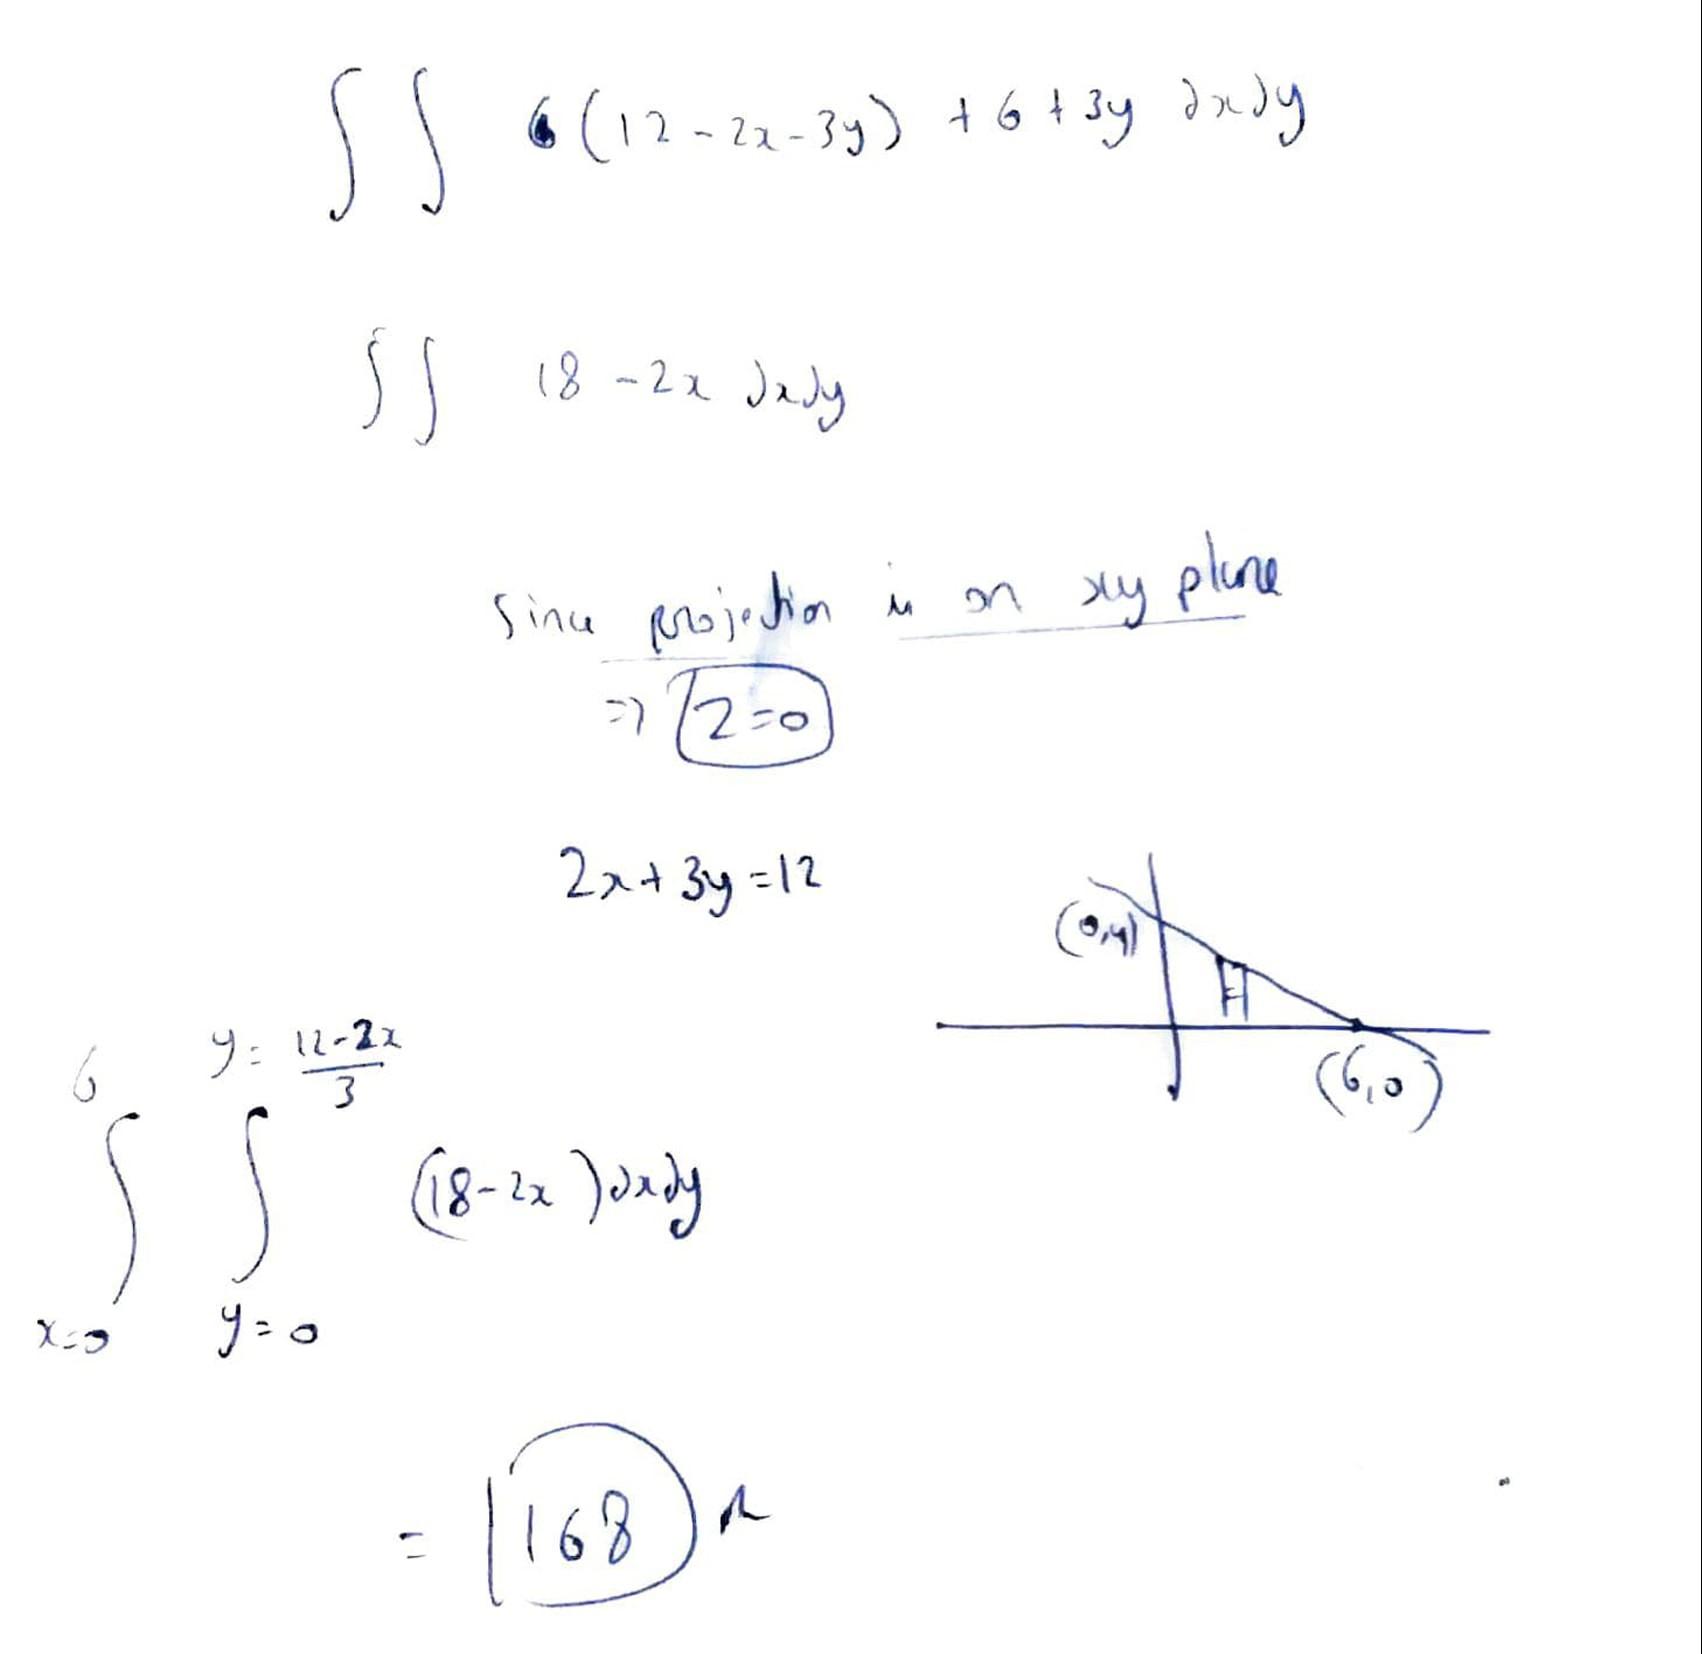 ∫∫ 6(12-2x-3y) + 6 + 3y dxdy
∫∫ 18 - 2x dxdy
Since projection is on xy plane
⇒ z=0
2x + 3y = 12
(0,4)
(6,0)
∫_{x=0}^{6} ∫_{y=0}^{y=\frac{12-2x}{3}} (18-2x) dxdy
= 168